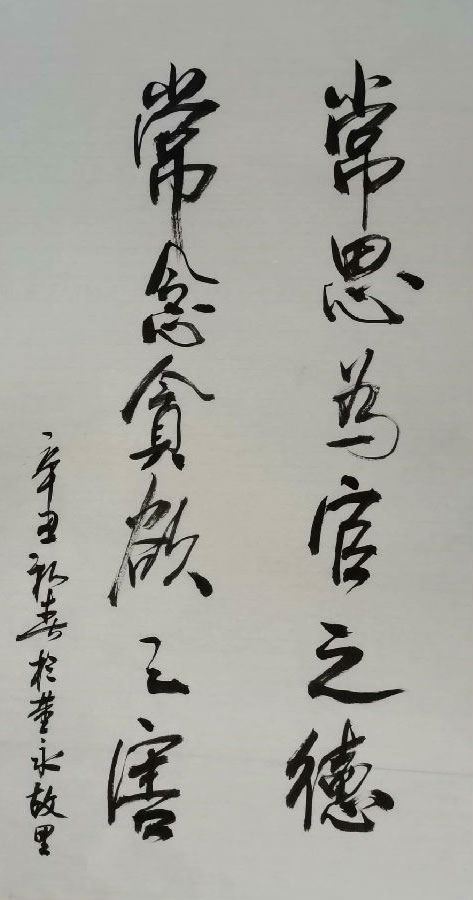 常思为官之德
常念贪欲之害
辛丑初春於董永故里